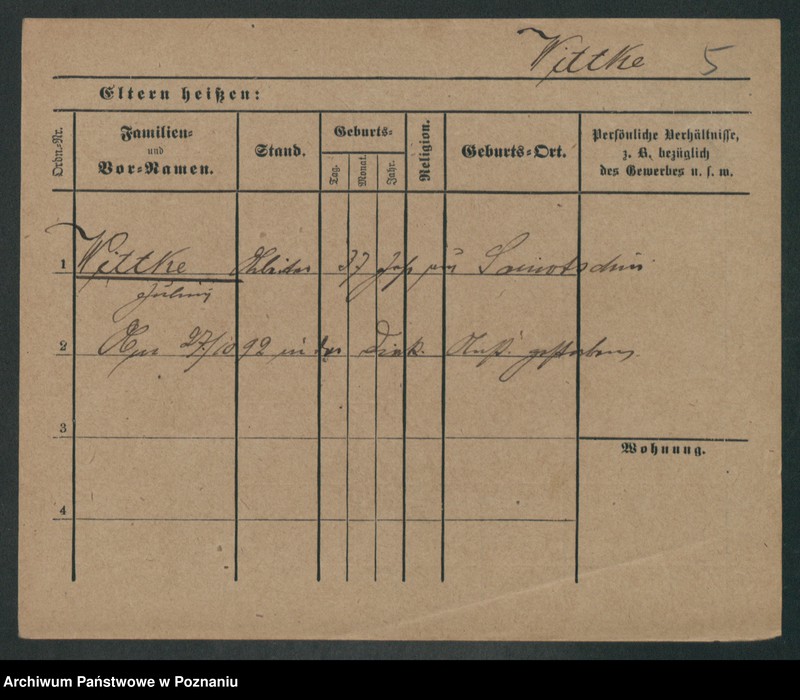 Wittke 5
Eltern heißen:
Ordn.-Nr.
Familien-
und
Vor-Namen.
Stand.
Geburts-
Tag.
Monat.
Jahr.
Religion.
Geburts-Ort.
Persönliche Verhältnisse,
z. B. bezüglich
des Gewerbes u. s. w.
1 Wittke Arbeiter 37 Jahr aus
Julius
2 Am 27/10 92 in der Diak. Anst. gestorben.
3
Wohnung.
4
Archiwum Państwowe w Poznaniu